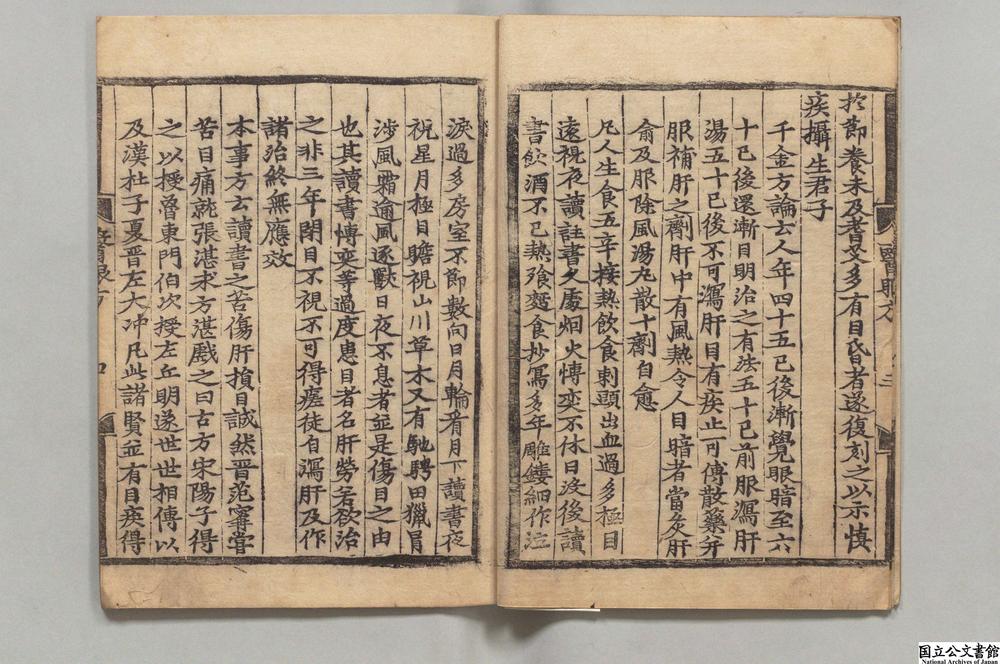 於節養未及耆艾多有目昏者遂復刻之以示慎
疾攝生君子
千金方論云人年四十五已後漸覺眼暗至六
十已後還漸目明治之有法五十已前服瀉肝
湯五十已後不可瀉肝目有疾止可傅散藥并
服補肝之劑肝中有風熱令人目暗者當灸肝
俞及服除風湯丸散十劑自愈
凡人生食五辛接熱飲食刺頭出血過多極目
遠視夜讀註書久處烟火慱奕不休日沒後讀
書飲酒不已熱飡麵食抄寫多年雕鏤細作泣
醫眼方 三
淚過多房室不節數向日月輪看月下讀書夜
視星月極目瞻視山川草木又有馳騁田獵冐
涉風霜逾風逐獸日夜不息者並是傷目之由
也其讀書慱奕等過度患目者名肝勞若欲治
之非三年閉目不視不可得瘥徒自瀉肝及作
諸治終無應效
本事方云讀書之苦傷肝損目誠然晋范寗嘗
苦目痛就張湛求方湛戲之曰古方宋陽子得
之以授魯東門伯次授左丘明遂世世相傳以
及漢杜子夏晋左大冲凡此諸賢並有目疾得
醫眼方 四
国立公文書館
National Archives of Japan